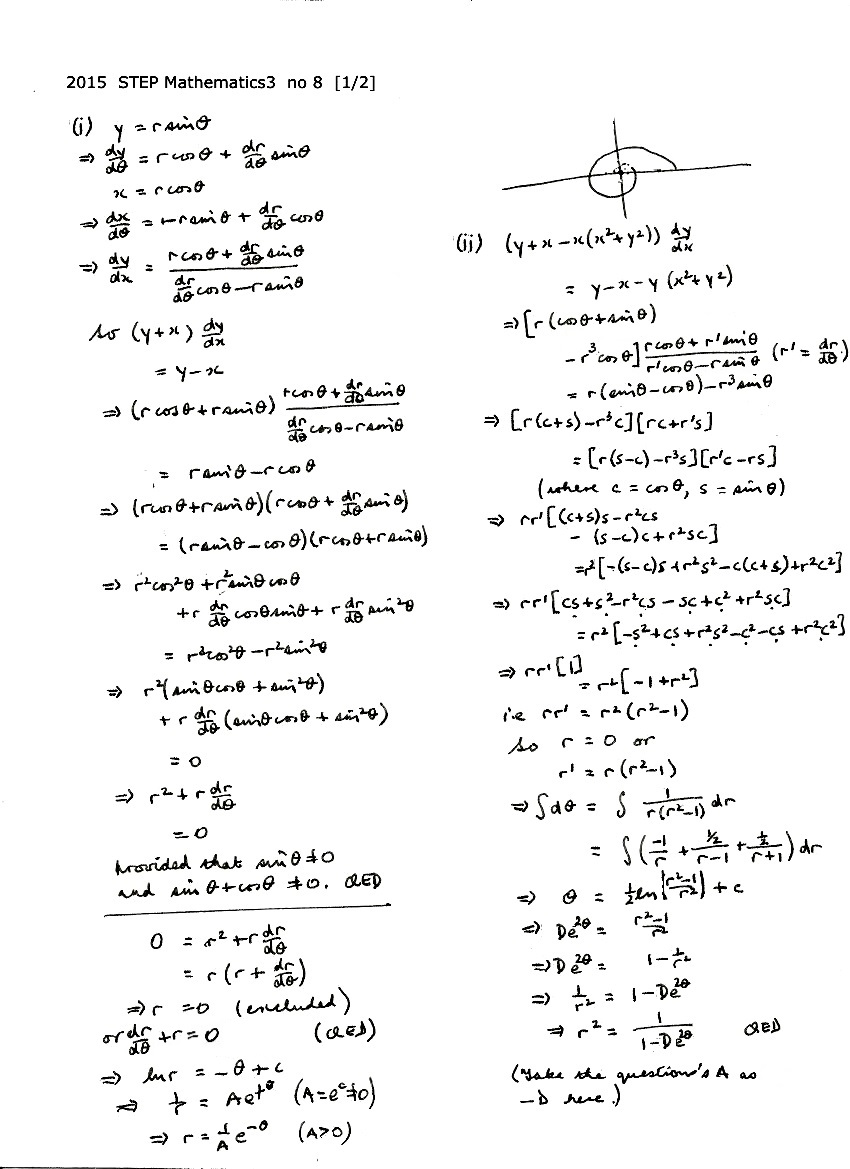 2015 STEP Mathematics3 no 8 [1/2]
(i) y = r sinθ
⇒ dy/dθ = r cosθ + dr/dθ sinθ
x = r cosθ
⇒ dx/dθ = -r sinθ + dr/dθ cosθ
⇒ dy/dx = (r cosθ + dr/dθ sinθ)/(dr/dθ cosθ - r sinθ)
So (y+x) dy/dx
= y-x
⇒ (r cosθ + r sinθ) (r cosθ + dr/dθ sinθ)/(dr/dθ cosθ - r sinθ)
= r sinθ - r cosθ
⇒ (r cosθ + r sinθ)(r cosθ + dr/dθ sinθ)
= (r sinθ - cosθ)(r cosθ + r sinθ)
⇒ r²cos²θ + r² sinθ cosθ
+ r dr/dθ cosθ sinθ + r dr/dθ sin²θ
= r²cos²θ - r² sin²θ
⇒ r²(sinθ cosθ + sin²θ)
+ r dr/dθ (sinθ cosθ + sin²θ)
= 0
⇒ r² + r dr/dθ
= 0
provided that sinθ ≠ 0
and sinθ + cosθ ≠ 0. QED
0 = r² + r dr/dθ
= r (r + dr/dθ)
⇒ r = 0 (excluded)
or dr/dθ + r = 0 (QED)
⇒ ln r = -θ + c
⇒ 1/r = Ae^{+θ} (A = e^c ≠ 0)
⇒ r = 1/A e^{-θ} (A>0)
(ii) (y+x-x(x²+y²)) dy/dx
= y-x-y(x²+y²)
⇒ [r(cosθ + sinθ)
- r³ cosθ] (r cosθ + r' sinθ)/(r' cosθ - r sinθ) (r' = dr/dθ)
= r(sinθ - cosθ) - r³ sinθ
⇒ [r(c+s) - r³c][rc + r's]
= [r(s-c) - r³s][r'c - rs]
(where c = cosθ, s = sinθ)
⇒ rr'[(c+s)s - r²cs
- (s-c)c + r²sc]
= r²[-(s-c)s + r²s² - c(c+s) + r²c²]
⇒ rr'[cs + s² - r²cs - sc + c² + r²sc]
= r²[-s² + cs + r²s² - c² - cs + r²c²]
⇒ rr'[1]
= r²[-1 + r²]
i.e rr' = r²(r²-1)
So r = 0 or
r' = r(r²-1)
⇒ ∫dθ = ∫ 1/(r(r²-1)) dr
= ∫(-1/r + ½/(r-1) + ½/(r+1)) dr
⇒ θ = ½ln|(r²-1)/r²| + c
⇒ De^{2θ} = (r²-1)/r²
⇒ De^{2θ} = 1 - 1/r²
⇒ 1/r² = 1 - De^{2θ}
⇒ r² = 1/(1 - De^{2θ}) QED
(Take the question's A as
-D here.)